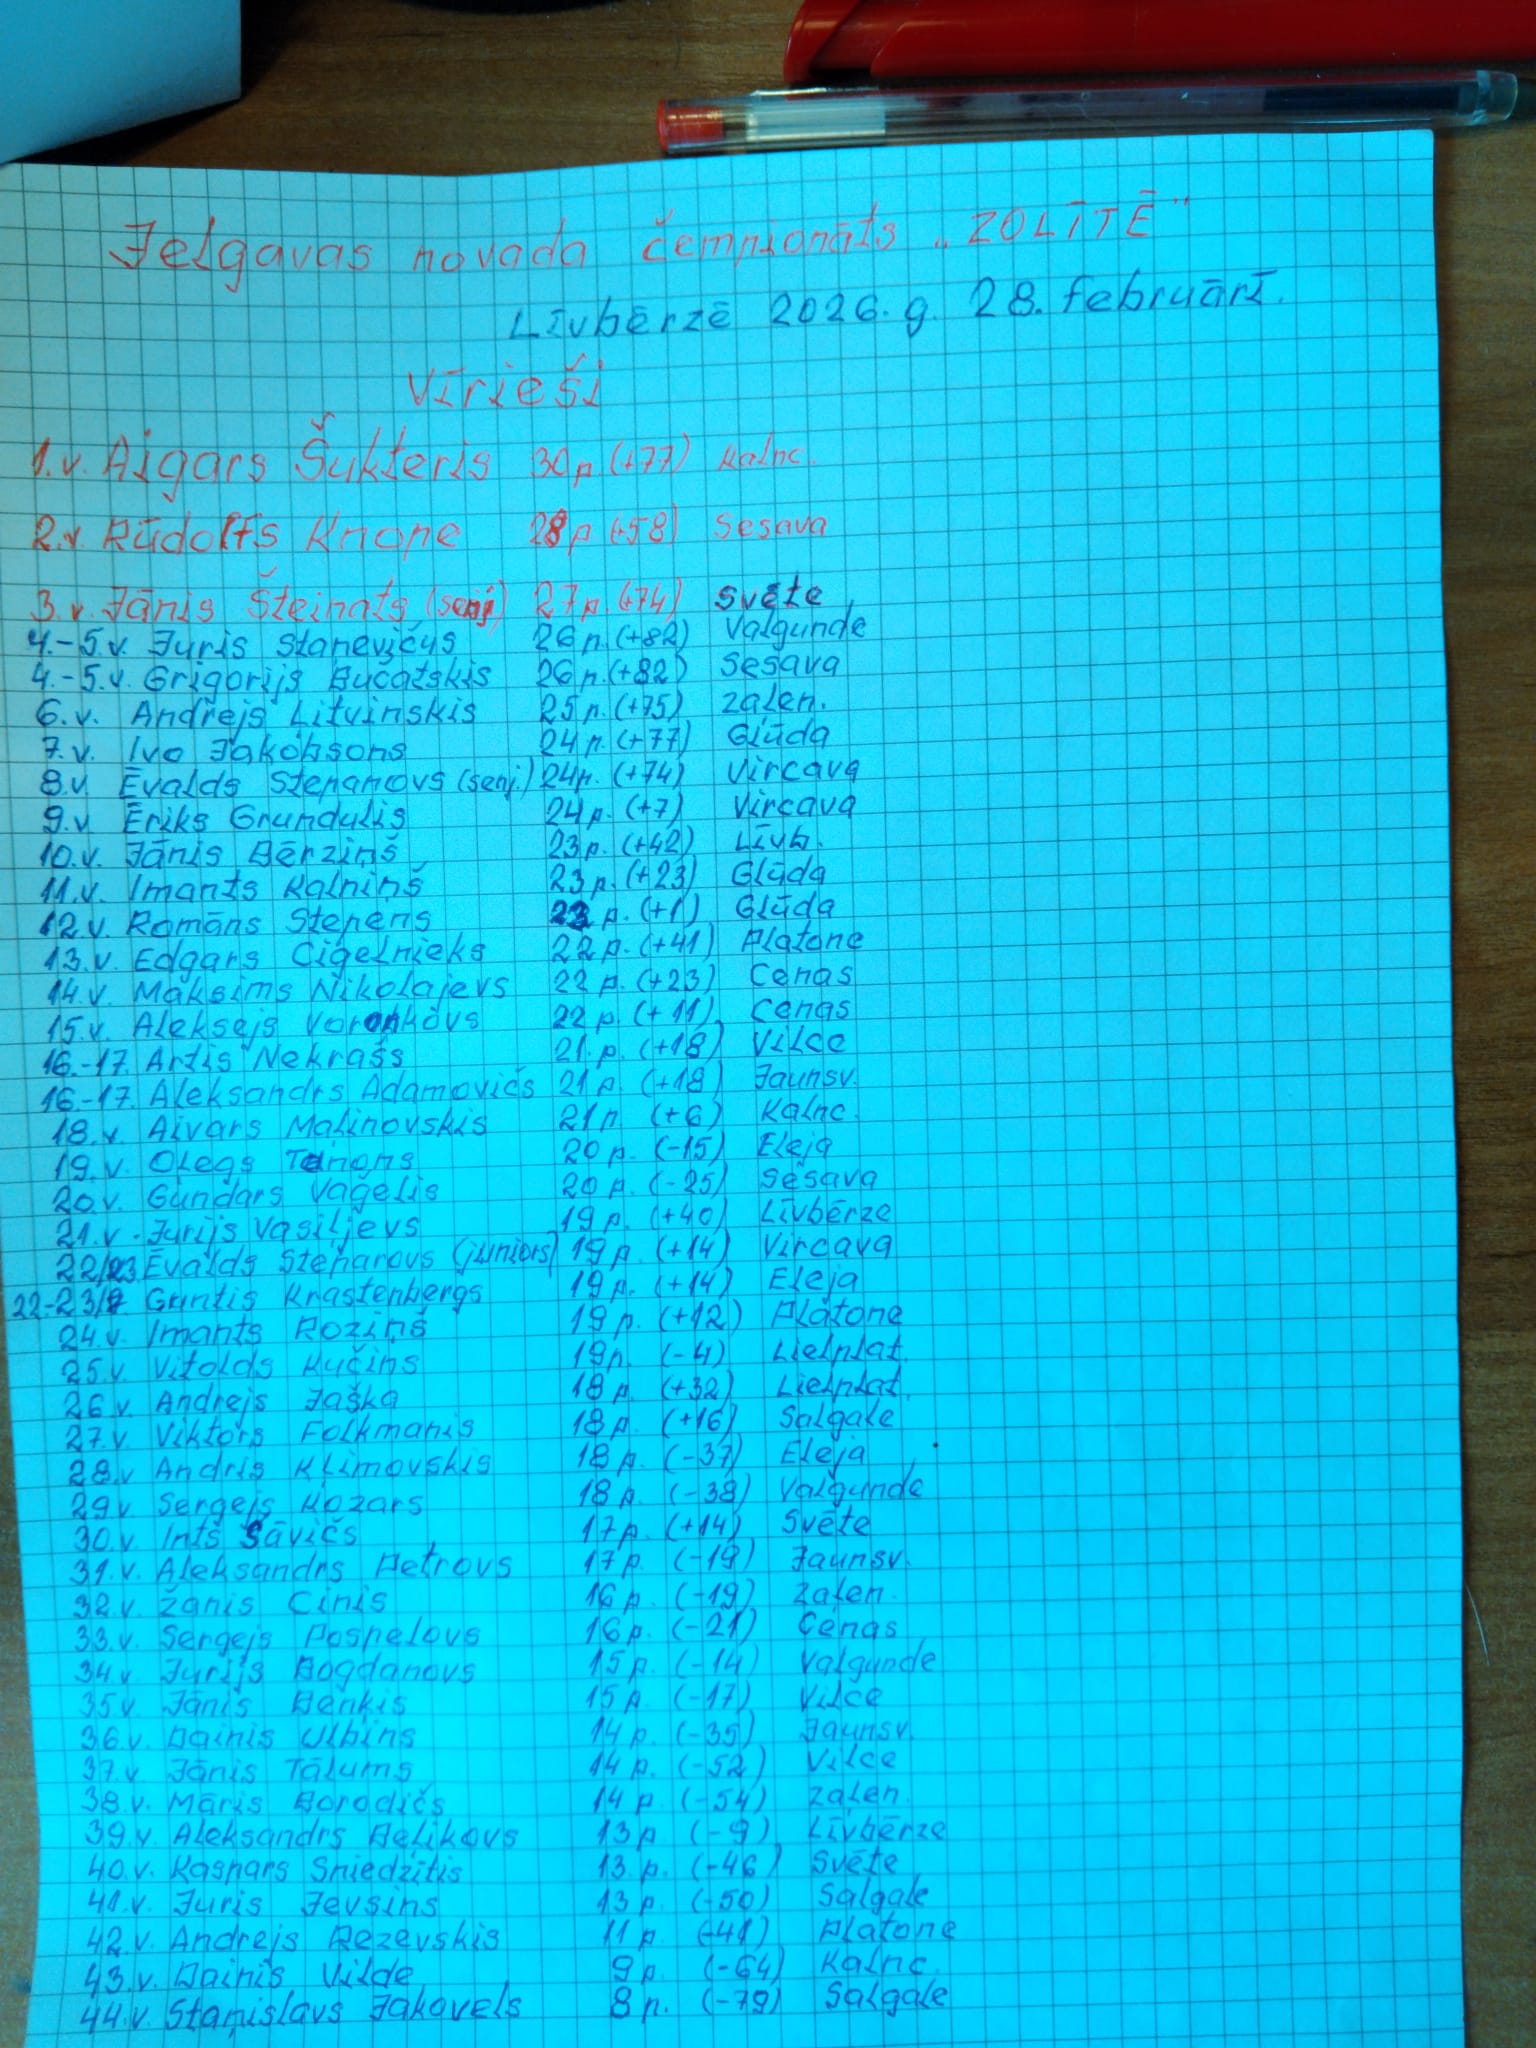 Jelgavas novada čempionāts „ZOLĪTĒ"
Līvbērzē 2026. g. 28. februārī.
Vīrieši
1.v. Aigars Šukteris 30p (+77) Kalnc.
2.v. Rūdolfs Knope 28p (+58) Sesava
3.v. Jānis Šteinats (senj) 27p. (+74) Svēte
4.-5.v. Juris Stanevičus 26p. (+82) Valgunde
4.-5.v. Grigorijs Bucatskis 26p. (+82) Sesava
6.v. Andrejs Litvinskis 25p. (+75) Zaļen.
7.v. Ivo Jakobsons 24p. (+77) Glūda
8.v. Ēvalds Stepanovs (senj.) 24p. (+74) Vircava
9.v Ēriks Grundulis 24p. (+7) Vircava
10.v. Jānis Bērziņš 23p. (+42) Līvb.
11.v. Imants Kalniņš 23p. (+23) Glūda
12.v. Romāns Stepens p. (+1) Glūda
13.v. Edgars Cigelnieks 22p. (+41) Platone
14.v. Maksims Nikolajevs 22p. (+23) Cenas
15.v. Aleksejs Voronkovs 22p. (+11) Cenas
16.-17. Artis Nekrašs 21.p. (+18) Vilce
16.-17. Aleksandrs Adamovičs 21p. (+18) Jaunsv.
18.v. Aivars Maļinovskis 21p. (+6) Kalnc.
19.v. Oļegs 20p. (-15) Eleja
20.v. Gundars Vaģelis 20p. (-25) Sesava
21.v. Jurijs Vasiļjevs 19p. (+40) Līvbērze
22/23 Ēvalds Stepanovs (juniors) 19p. (+14) Vircava
22-23/ Guntis Krastenbergs 19p. (+14) Eleja
24.v. Imants Roziņš 19p. (+12) Platone
25.v. Vitolds Kučins 19p. (-4) Lielplat.
26.v. Andrejs Jaška 18p. (+32) Lielplat.
27.v. Viktors Folkmanis 18p. (+16) Salgale
28.v Andris Kļimovskis 18p. (-37) Eleja
29.v. Sergejs Kozars 18p. (-38) Valgunde
30.v. Ints Sāvičs 17p. (+14) Svēte
31.v. Aleksandrs Petrovs 17p. (-19) Jaunsv.
32.v. Žanis Cinis 16p. (-19) Zaļen.
33.v. Sergejs Pospelovs 16p. (-21) Cenas
34.v. Jurijs Bogdanovs 15p. (-14) Valgunde
35.v. Jānis Beņķis 15p. (-17) Vilce
36.v. Dainis Ulbins 14p. (-35) Jaunsv.
37.v. Jānis Tālums 14p. (-52) Vilce
38.v. Māris Borodičs 14p. (-54) Zaļen.
39.v. Aleksandrs Beļikovs 13p. (-9) Līvbērze
40.v. Kaspars Sniedzītis 13.p. (-46) Svēte
41.v. Juris Jevsins 13p. (-50) Salgale
42.v. Andrejs Rezevskis 11p. (-41) Platone
43.v. Dainis Vilde 9p. (-64) Kalnc.
44.v. Staņislavs Jakovels 8p. (-79) Salgale